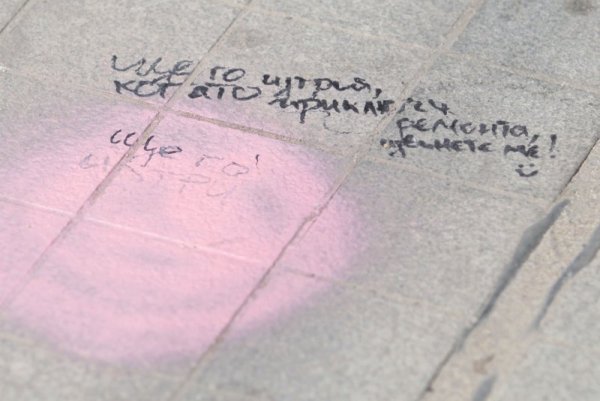 ще го изтрия,
когато приключи
ремонта,
ме!
ще го
изтри